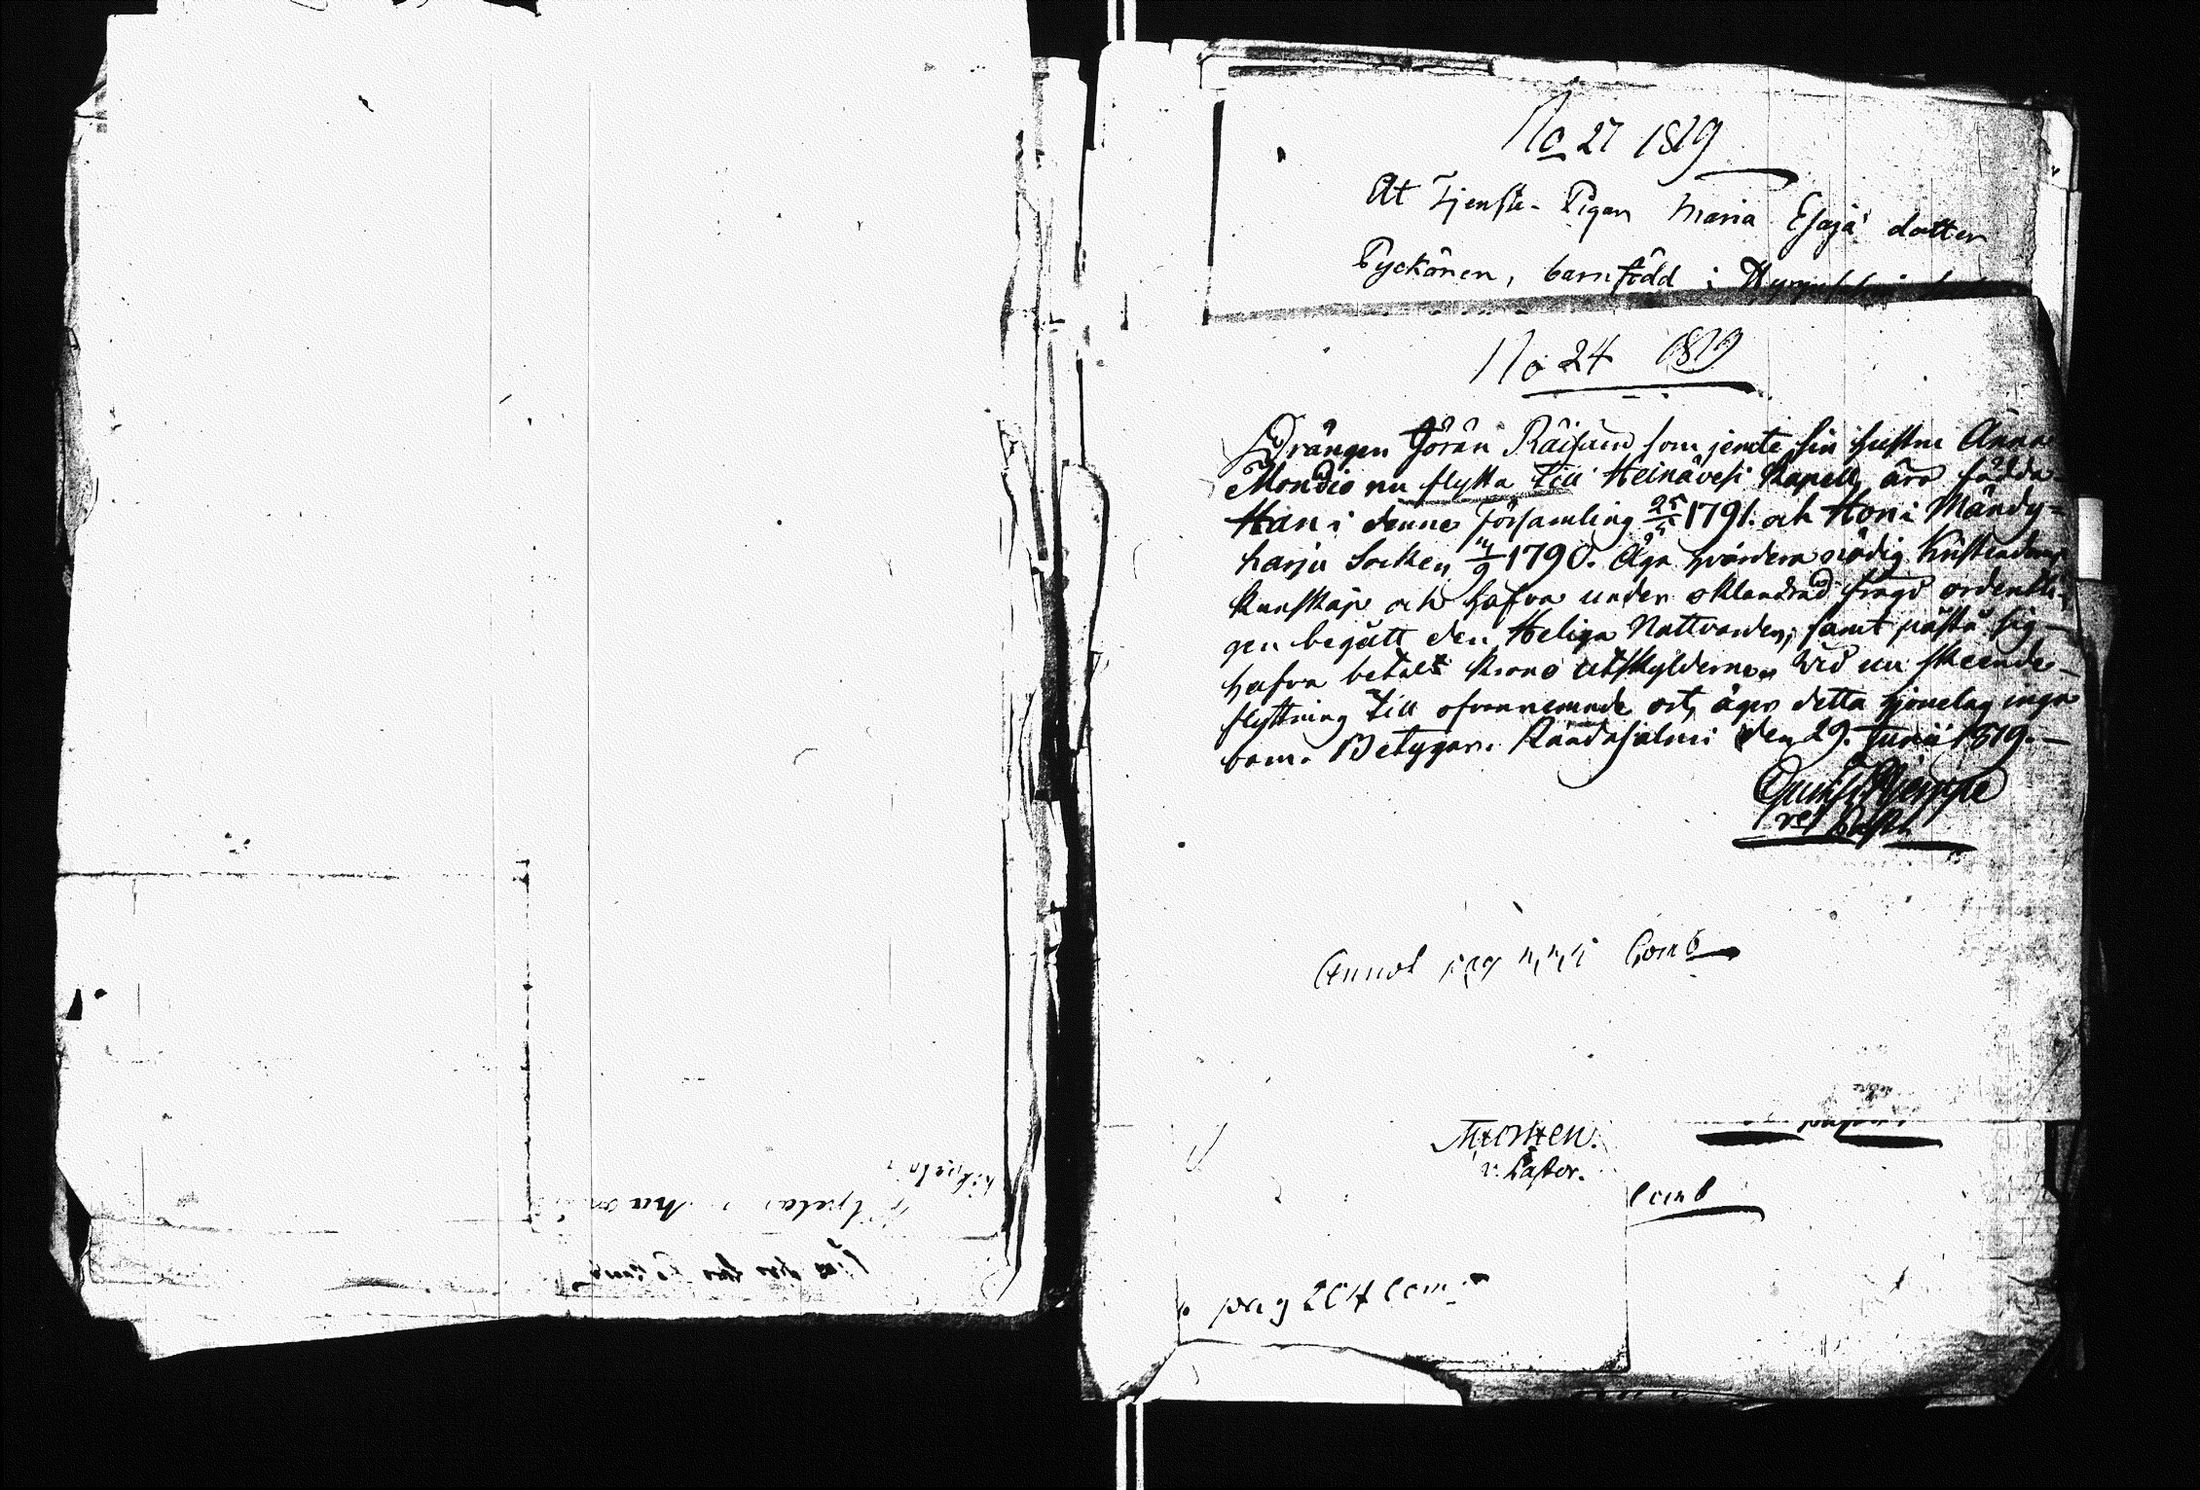 No 27 1819
At Tjenste-Pigan Maria Esaja dotter
Pyckönen, barnfödd i
No 24 1819
Drängen Jöran Räisänd som jemte sin hustru Anna
Mondio nu flytta till Heinävesi Kapell, äro födde
Han i denne Församling 25/5 1791. och Hon i Mändy-
harju Socken 1790. Äga hvardera nödig Kristendoms
kunskap och hafva under oklandrad frägd ordentli-
gen begått den Heliga Nattvarden, samt påstå sig
hafva betalt krono utskylderne. Vid nu skeende
flyttning till ofvannemnde ort, äger detta hjonelag inga
barn. Betygar. Randasalmi den 29. Junii 1819.
Annot pag Comb
v. Pastor.
Comb
pag 204 Com